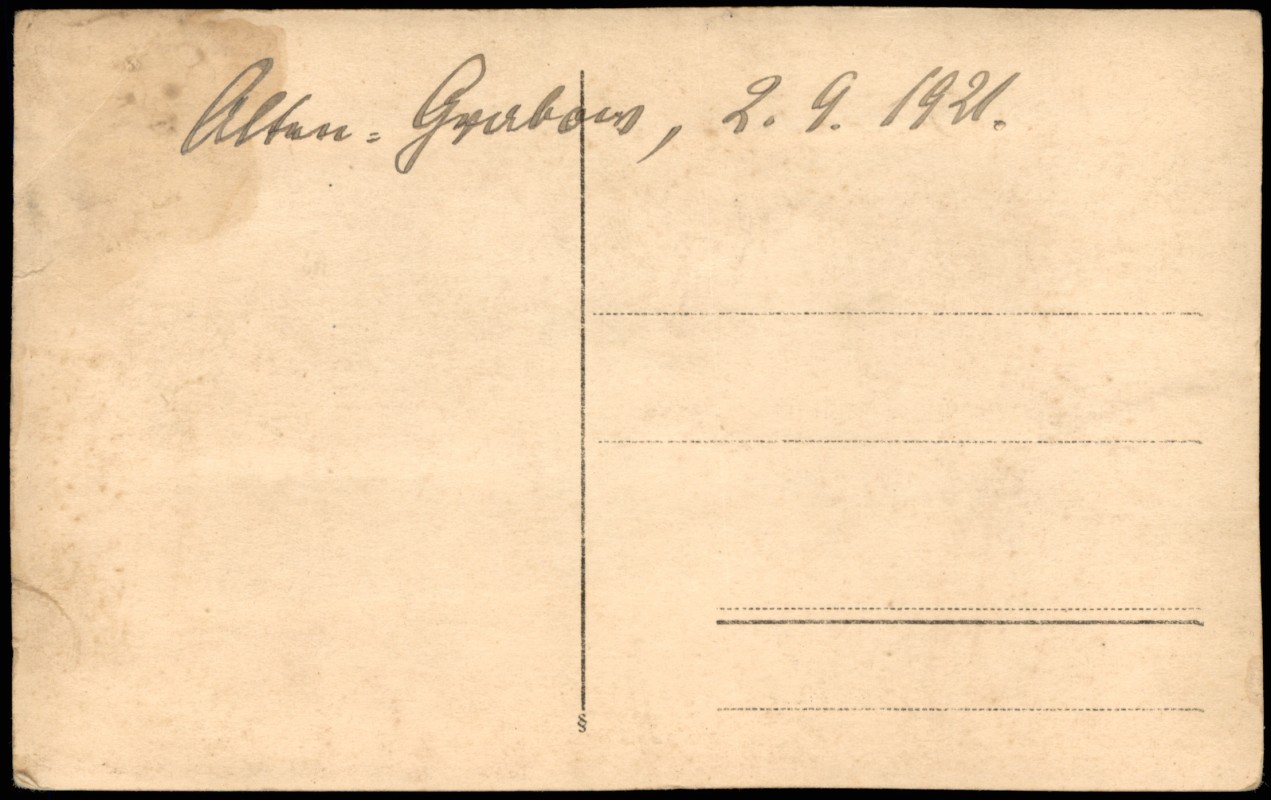 Alten-Grabow, 2. 9. 1921.
§